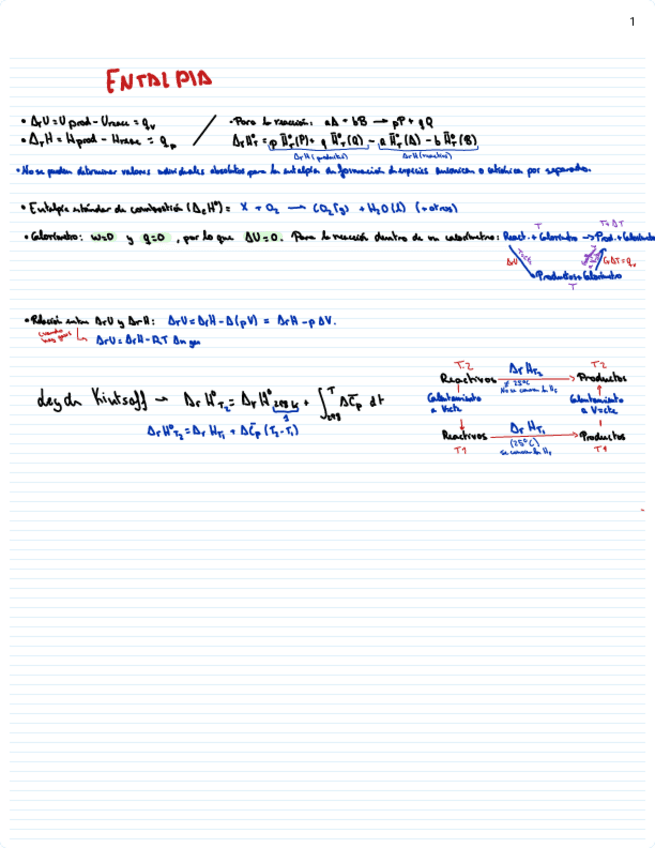 1
ENTALPIA
• ΔrU = Uprod - Ureacc = qv
• ΔrH = Hprod - Hreac = qp
• Para la reacción: aA + bB → pP + qQ
ΔrH°T = p H̄°T(P) + q H̄°T(Q) - a H̄°T(A) - b H̄°T(B)
ΔrH (productos) ΔrH (reactivos)
• No se pueden determinar valores individuales absolutos para la entalpía de formación de especies aniónicas o catiónicas por separado.
• Entalpía estándar de combustión (ΔcH°) = X + O2 → CO2(g) + H2O(l) (+otros)
• Calorímetro: w=0 y q=0, por lo que ΔU=0. Para la reacción dentro de un calorímetro: React. + Calorímetro → Prod. + Calorímetro
T T+ΔT
ΔU T=cte CvΔT=qv
Productos + Calorímetro
T
• Relación entre ΔrU y ΔrH: ΔrU = ΔrH - Δ(pV) = ΔrH - pΔV.
cuando hay gases
ΔrU = ΔrH - RT Δn gas
Ley de Kirtsoff → ΔrH°T2 = ΔrH°298K + ∫298T ΔC̄p dt
1
ΔrH°T2 = ΔrHT1 + ΔC̄p (T2-T1)
T2 ΔrHT2 T2
Reactivos → Productos
≠ 25°C
No se conocen las Hf
Calentamiento a V=cte
Calentamiento a V=cte
Reactivos ΔrHT1 → Productos
T1 (25°C) T1
se conocen las Hf